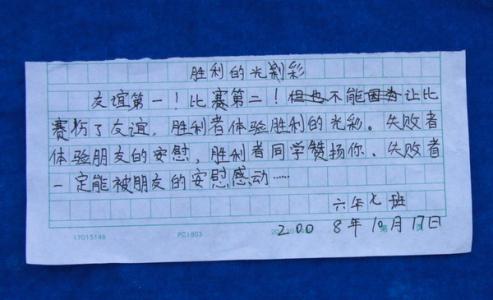 胜利的光彩
友谊第一！比赛第二！但也不能因为让比
赛伤了友谊。胜利者体验胜利的光彩。失败者
体验朋友的安慰，胜利者同学赞扬你、失败者
一定能被朋友的安慰感动……
六年七班
2008年10月17日
17015148
PC1803